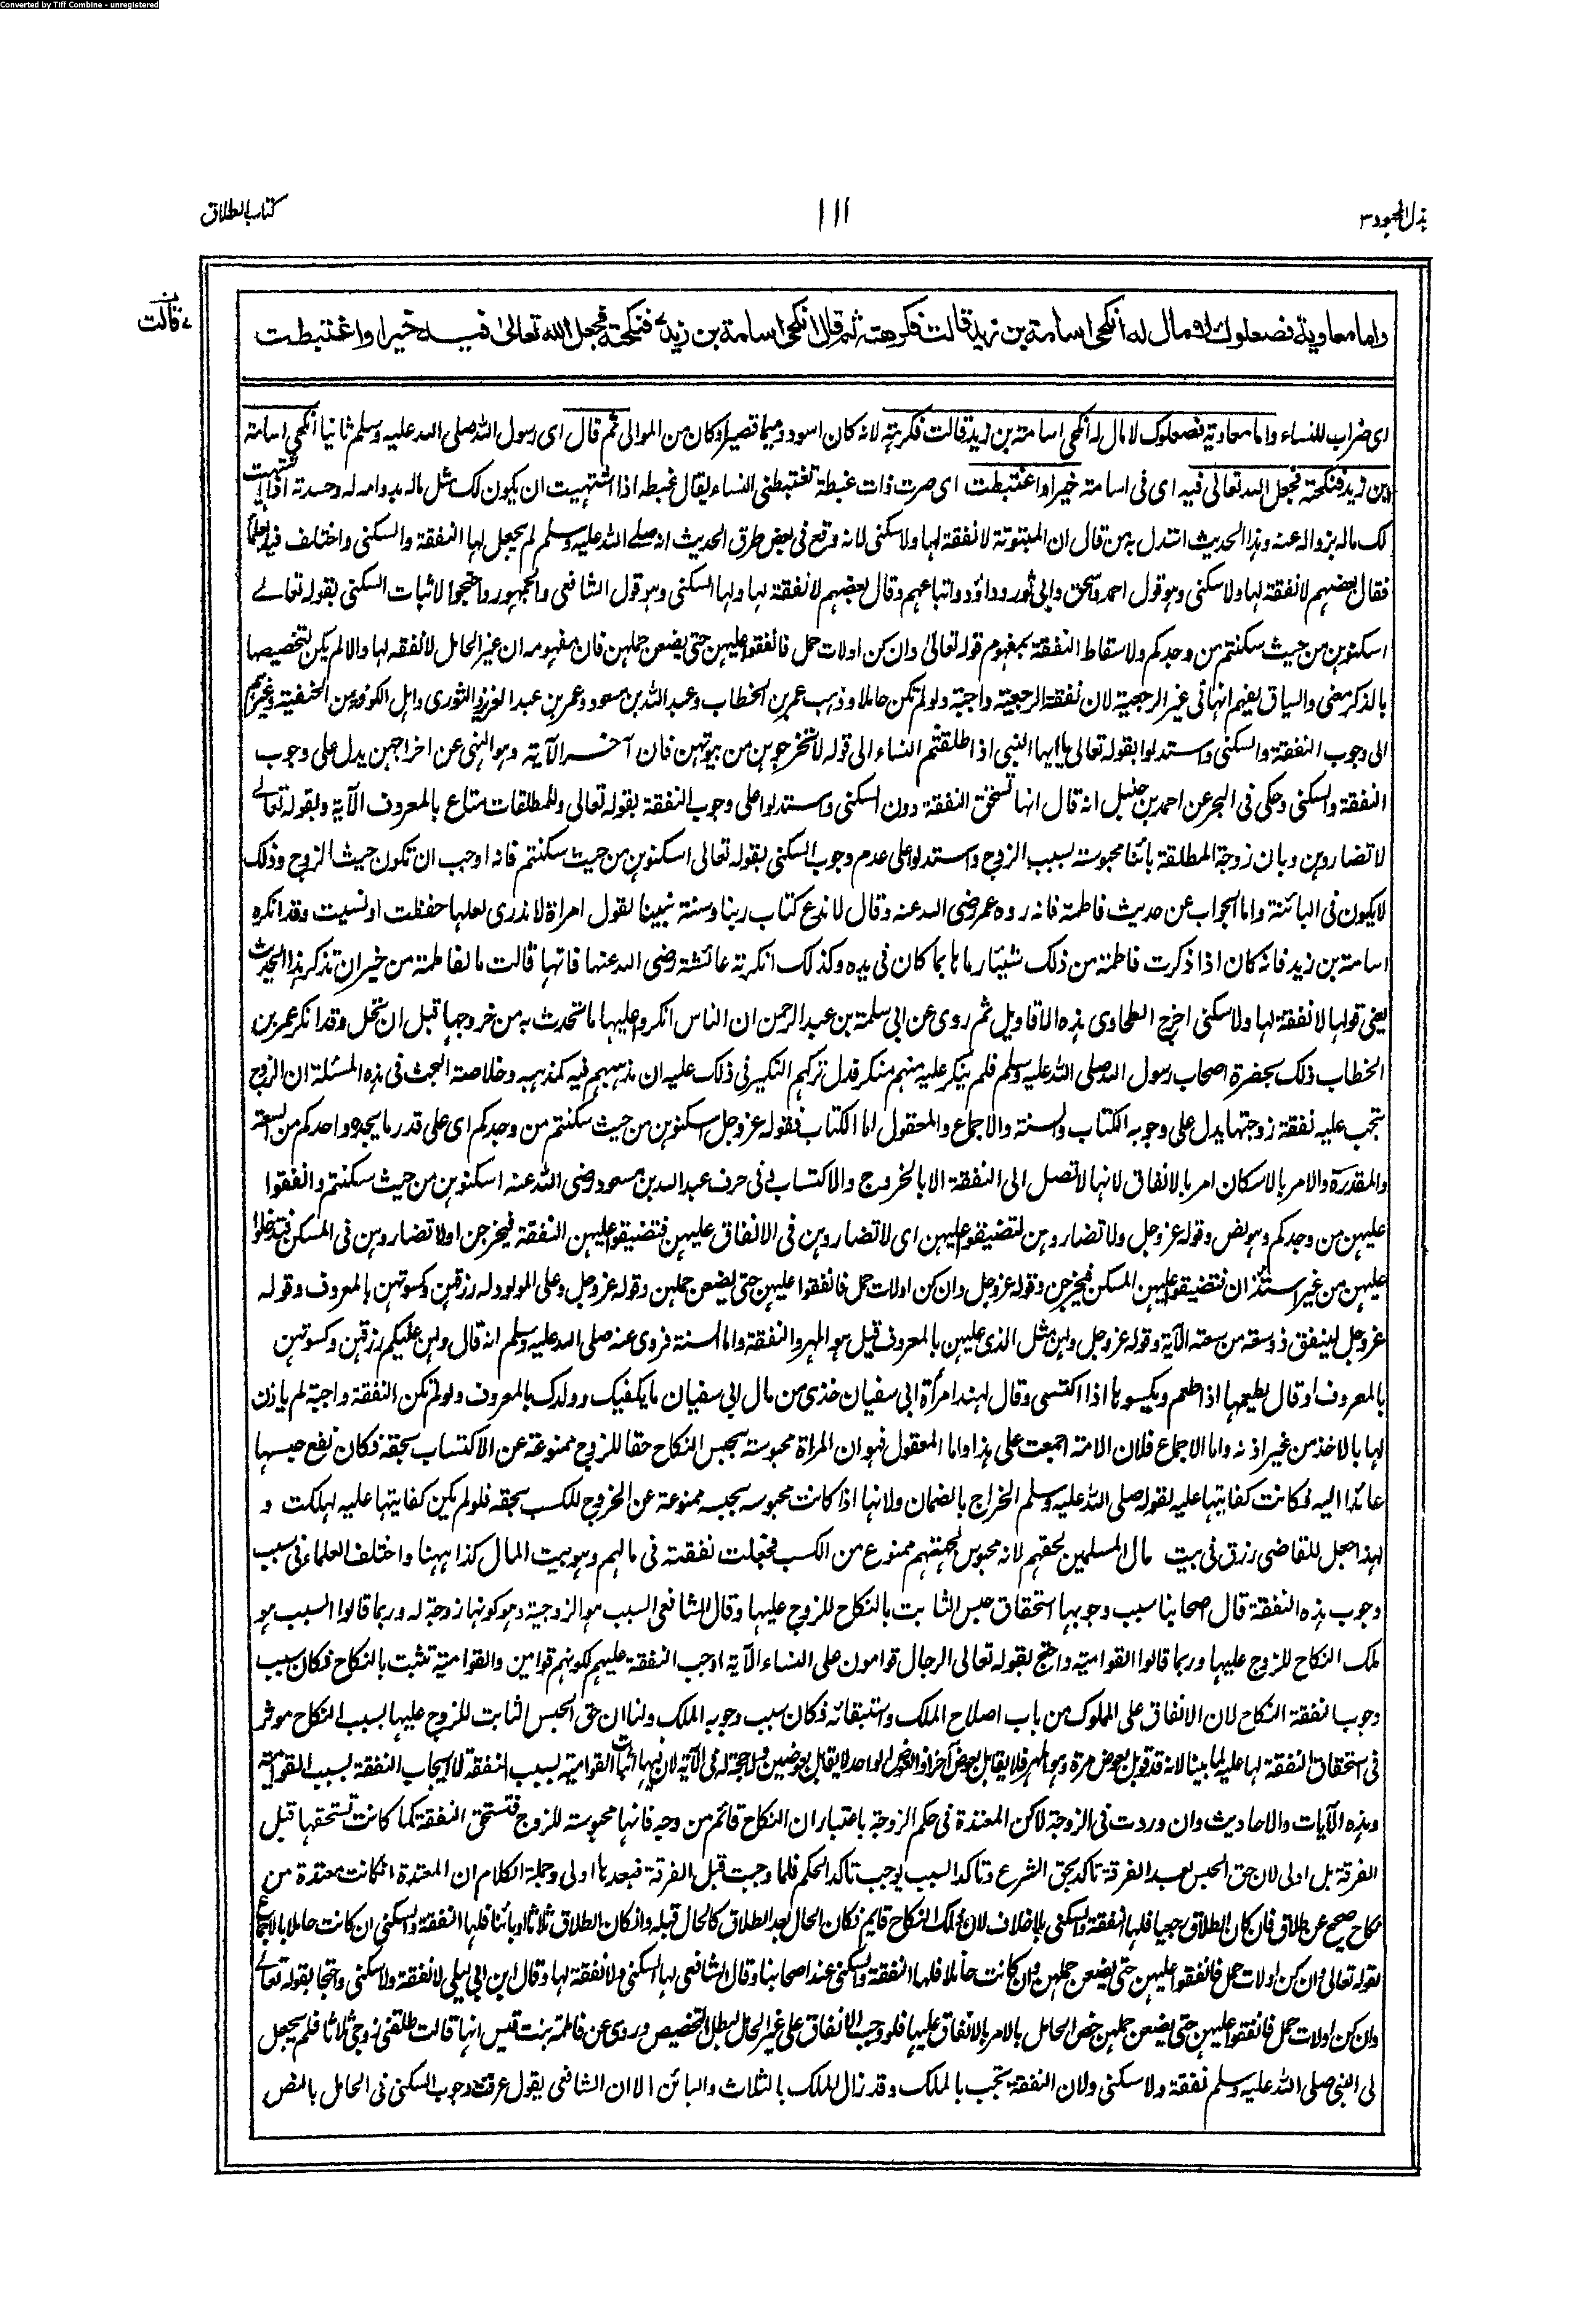 Converted by Tiff Combine - unregistered
بذل المجهود ٣
١١١
كتاب الطلاق
واما معاوية فصعلوك لا مال له انكحى اسامة بن زيد قالت فكرهته ثم قال انكحى اسامة بن زيد فنكحته فجعل الله تعالى فيه خيرا واغتبطت
قالت
اى ضراب للنساء واما معاوية فصعلوك لا مال له انكحى اسامة بن زيد قالت فكرهته لانه كان اسود دميما قصيرا وكان من الموالى ثم قال اى رسول الله صلى الله عليه وسلم ثانيا انكحى اسامة
بن زيد فنكحته فجعل الله تعالى فيه اى فى اسامة خيرا واغتبطت اى صرت ذات غبطة تغتبطنى النساء يقال غبطه اذا اشتهيت ان يكون لك مثل ماله بدوامه له وحسدته اذا اشتهيت
لك ماله بزواله عنه وهذا الحديث استدل به من قال ان المبتوتة لا نفقة لها ولا سكنى لانه وقع فى بعض طرق الحديث انه صلى الله عليه وسلم لم يجعل لها النفقة والسكنى واختلف فيه العلماء
فقال بعضهم لا نفقة لها ولا سكنى وهو قول احمد واسحق وابى ثور وداؤد واتباعهم وقال بعضهم لا نفقة لها ولها السكنى وهو قول الشافعى والجمهور واحتجوا لاثبات السكنى بقوله تعالے
اسكنوهن من حيث سكنتم من وجدكم ولاسقاط النفقة بمفهوم قوله تعالى وان كن اولات حمل فانفقوا عليهن حتى يضعن حملهن فان مفهومه ان غير الحامل لا نفقة لها والا لم يكن لتخصيصها
بالذكر معنى والسياق يفهم انها فى غير الرجعية لان نفقة الرجعية واجبة ولو لم تكن حاملا وذهب عمر بن الخطاب وعبد الله بن مسعود وعمر بن عبد العزيز والثورى واهل الكوفة من الحنفية وغيرهم
الى وجوب النفقة والسكنى واستدلوا بقوله تعالى ياايها النبى اذا طلقتم النساء الى قوله لا تخرجوهن من بيوتهن فان آخر الآية وهو النهى عن اخراجهن يدل على وجوب
النفقة والسكنى وحكى فى البحر عن احمد بن حنبل انه قال انها تستحق النفقة دون السكنى واستدلوا على وجوب النفقة بقوله تعالى وللمطلقات متاع بالمعروف الآية وبقوله تعالے
لا تضاروهن وبان زوجة المطلقة بائنا محبوسة بسبب الزوج واستدلوا على عدم وجوب السكنى بقوله تعالى اسكنوهن من حيث سكنتم فانه اوجب ان تكون حيث الزوج وذلك
لا يكون فى البائنة واما الجواب عن حديث فاطمة فانه رده عمر رضى الله عنه وقال لا ندع كتاب ربنا وسنة نبينا لقول امراة لا ندرى لعلها حفظت او نسيت وقد انكره
اسامة بن زيد فانه كان اذا ذكرت فاطمة من ذلك شيئا رماها بما كان فى يده وكذلك انكرته عائشة رضى الله عنها فانها قالت ما لفاطمة من خير ان تذكر هذا الحديث
يعنى قولها لا نفقة لها ولا سكنى اخرج الطحاوى هذه الاقاويل ثم روى عن ابى سلمة بن عبد الرحمن ان الناس انكروا عليها ما تتحدث به من خروجها قبل ان تحل وقد انكر عمر بن
الخطاب ذلك بحضرة اصحاب رسول الله صلى الله عليه وسلم فلم ينكر عليه منهم منكر فدل تركهم النكير فى ذلك عليه ان مذهبهم فيه كمذهبه وخلاصة البحث فى هذه المسئلة ان الزوج
تجب عليه نفقة زوجتها يدل على وجوبه الكتاب والسنة والاجماع والمعقول اما الكتاب فقوله عزوجل اسكنوهن من حيث سكنتم من وجدكم اى على قدر ما يجده احدكم من السعة
والمقدرة والامر بالاسكان امر بالانفاق لانها لا تصل الى النفقة الا بالخروج والاكتساب فى حرف عبد الله بن مسعود رضى الله عنه اسكنوهن من حيث سكنتم وانفقوا
عليهن من وجدكم وهو نص وقوله عزوجل ولا تضاروهن لتضيقوا عليهن اى لا تضاروهن فى الانفاق عليهن فتضيقوا عليهن النفقة فيخرجن اولا تضاروهن فى المسكن فتدخلوا
عليهن من غير استئذان فتضيقوا عليهن المسكن فيخرجن وقوله عزوجل وان كن اولات حمل فانفقوا عليهن حتى يضعن حملهن وقوله عزوجل وعلى المولود له رزقهن وكسوتهن بالمعروف وقوله
عزوجل لينفق ذو سعة من سعته الآية وقوله عزوجل ولهن مثل الذى عليهن بالمعروف قيل هو المهر والنفقة واما السنة فروى عنه صلى الله عليه وسلم انه قال ولهن عليكم رزقهن وكسوتهن
بالمعروف وقال يطعمها اذا طعم ويكسوها اذا اكتسى وقال لهند امرأة ابى سفيان خذى من مال ابى سفيان ما يكفيك وولدك بالمعروف ولو لم تكن النفقة واجبة لم ياذن
لها بالاخذ من غير اذنه واما الاجماع فلان الامة اجمعت على هذا واما المعقول فهو ان المراة محبوسة بحبس النكاح حقا للزوج ممنوعة عن الاكتساب بحقه فكان نفع حبسها
عائدا اليه فكانت كفايتها عليه لقوله صلى الله عليه وسلم الخراج بالضمان ولانها اذا كانت محبوسه بحبسه ممنوعة عن الخروج للكسب بحقه فلو لم يكن كفايتها عليه لهلكت و
لهذا جعل للقاضى رزق فى بيت مال المسلمين لحقهم لانه محبوس لجهتهم ممنوع من الكسب فجعلت نفقته فى مالهم وهو بيت المال كذا ههنا واختلف العلماء فى سبب
وجوب هذه النفقة قال اصحابنا سبب وجوبها استحقاق حبس الثابت بالنكاح للزوج عليها وقال الشافعى السبب هو الزوجية وهو كونها زوجة له وربما قالوا السبب هو
ملك النكاح للزوج عليها وربما قالوا القوامية واحتج بقوله تعالى الرجال قوامون على النساء الآية اوجب النفقة عليهم لكونهم قوامين والقوامية تثبت بالنكاح فكان سبب
وجوب النفقة النكاح لان الانفاق على المملوك من باب اصلاح الملك واستبقائه فكان سبب وجوبه الملك ولنا ان حق الحبس الثابت للزوج عليها بسبب النكاح موثر
فى استحقاق النفقة لها عليه لما بينا لانه قد قوبل بعوض مرة وهو المهر فلا يقابل بعوض آخر اذ العوض الواحد لا يقابل بعوضين ولا حجة له فى الآية لان فيها اثبات القوامية بسبب النفقة لا ايجاب النفقة بسبب القوامية
وهذه الآيات والاحاديث وان وردت فى الزوجة لاكن المعتدة فى حكم الزوجة باعتبار ان النكاح قائم من وجه فانها محبوسة للزوج فتستحق النفقة كما كانت تستحقها قبل
الفرقة بل اولى لان حق الحبس بعد الفرقة تاكد بحق الشرع وتاكد السبب يوجب تاكد الحكم فلما وجبت قبل الفرقة فبعدها اولى وجملة الكلام ان المعتدة ان كانت معتدة من
نكاح صحيح عن طلاق فان كان الطلاق رجعيا فلها النفقة والسكنى بلا خلاف لان ملك النكاح قايم فكان الحال بعد الطلاق كالحال قبله وان كان الطلاق ثلاثا او بائنا فلها النفقة والسكنى ان كانت حاملا بالاجماع
لقوله تعالى وان كن اولات حمل فانفقوا عليهن حتى يضعن حملهن وان كانت حائلا فلها النفقة والسكنى عند اصحابنا وقال الشافعى لها السكنى ولا نفقة لها وقال ابن ابى ليلى لا نفقة ولا سكنى واحتجا بقوله تعالے
وان كن اولات حمل فانفقوا عليهن حتى يضعن حملهن خص الحامل بالامر بالانفاق عليها فلو وجب الانفاق على غير الحامل لبطل التخصيص وروى عن فاطمة بنت قيس انها قالت طلقنى زوجى ثلاثا فلم يجعل
لى النبى صلى الله عليه وسلم نفقة ولا سكنى ولان النفقة تجب بالملك وقد زال الملك بالثلاث والبائن الا ان الشافعى يقول عرفت وجوب السكنى فى الحامل بالنص